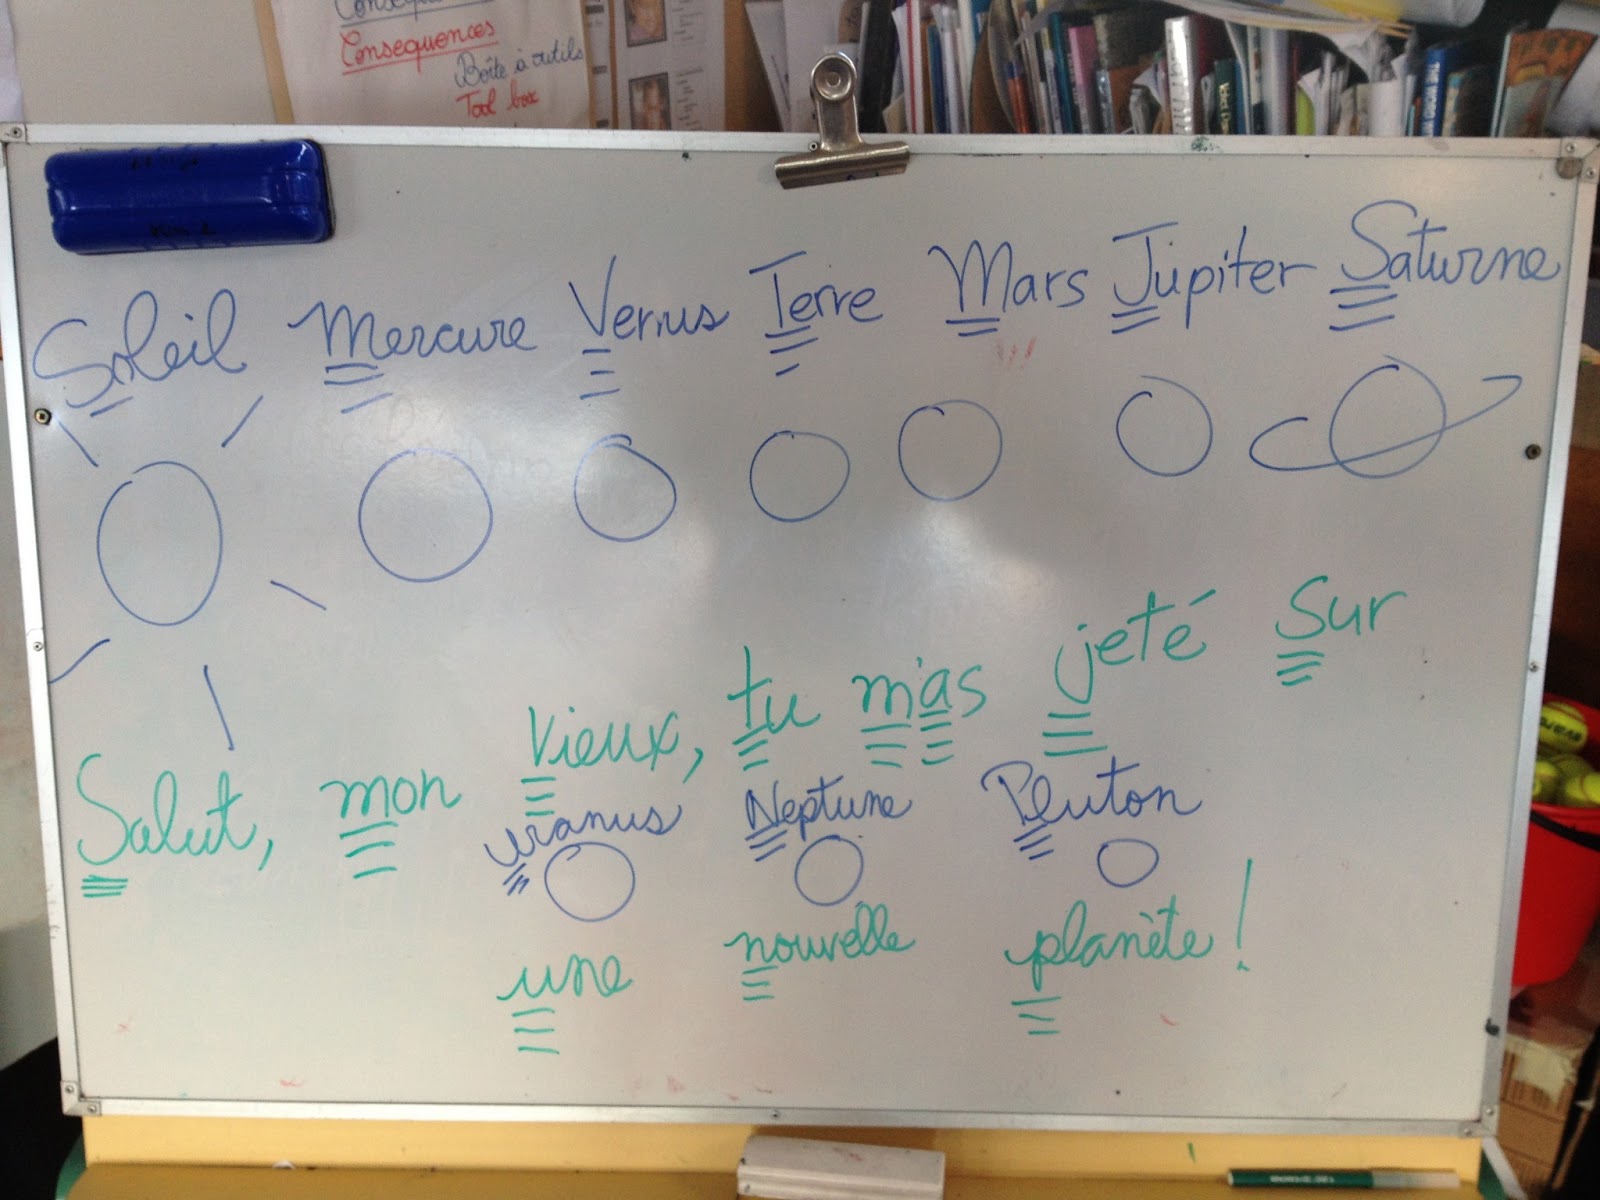 Consequences
Boîte à outils
Tool box
Soleil Mercure Venus Terre Mars Jupiter Saturne
Salut, mon vieux, tu m'as jeté sur
uranus Neptune Pluton
une nouvelle planète !